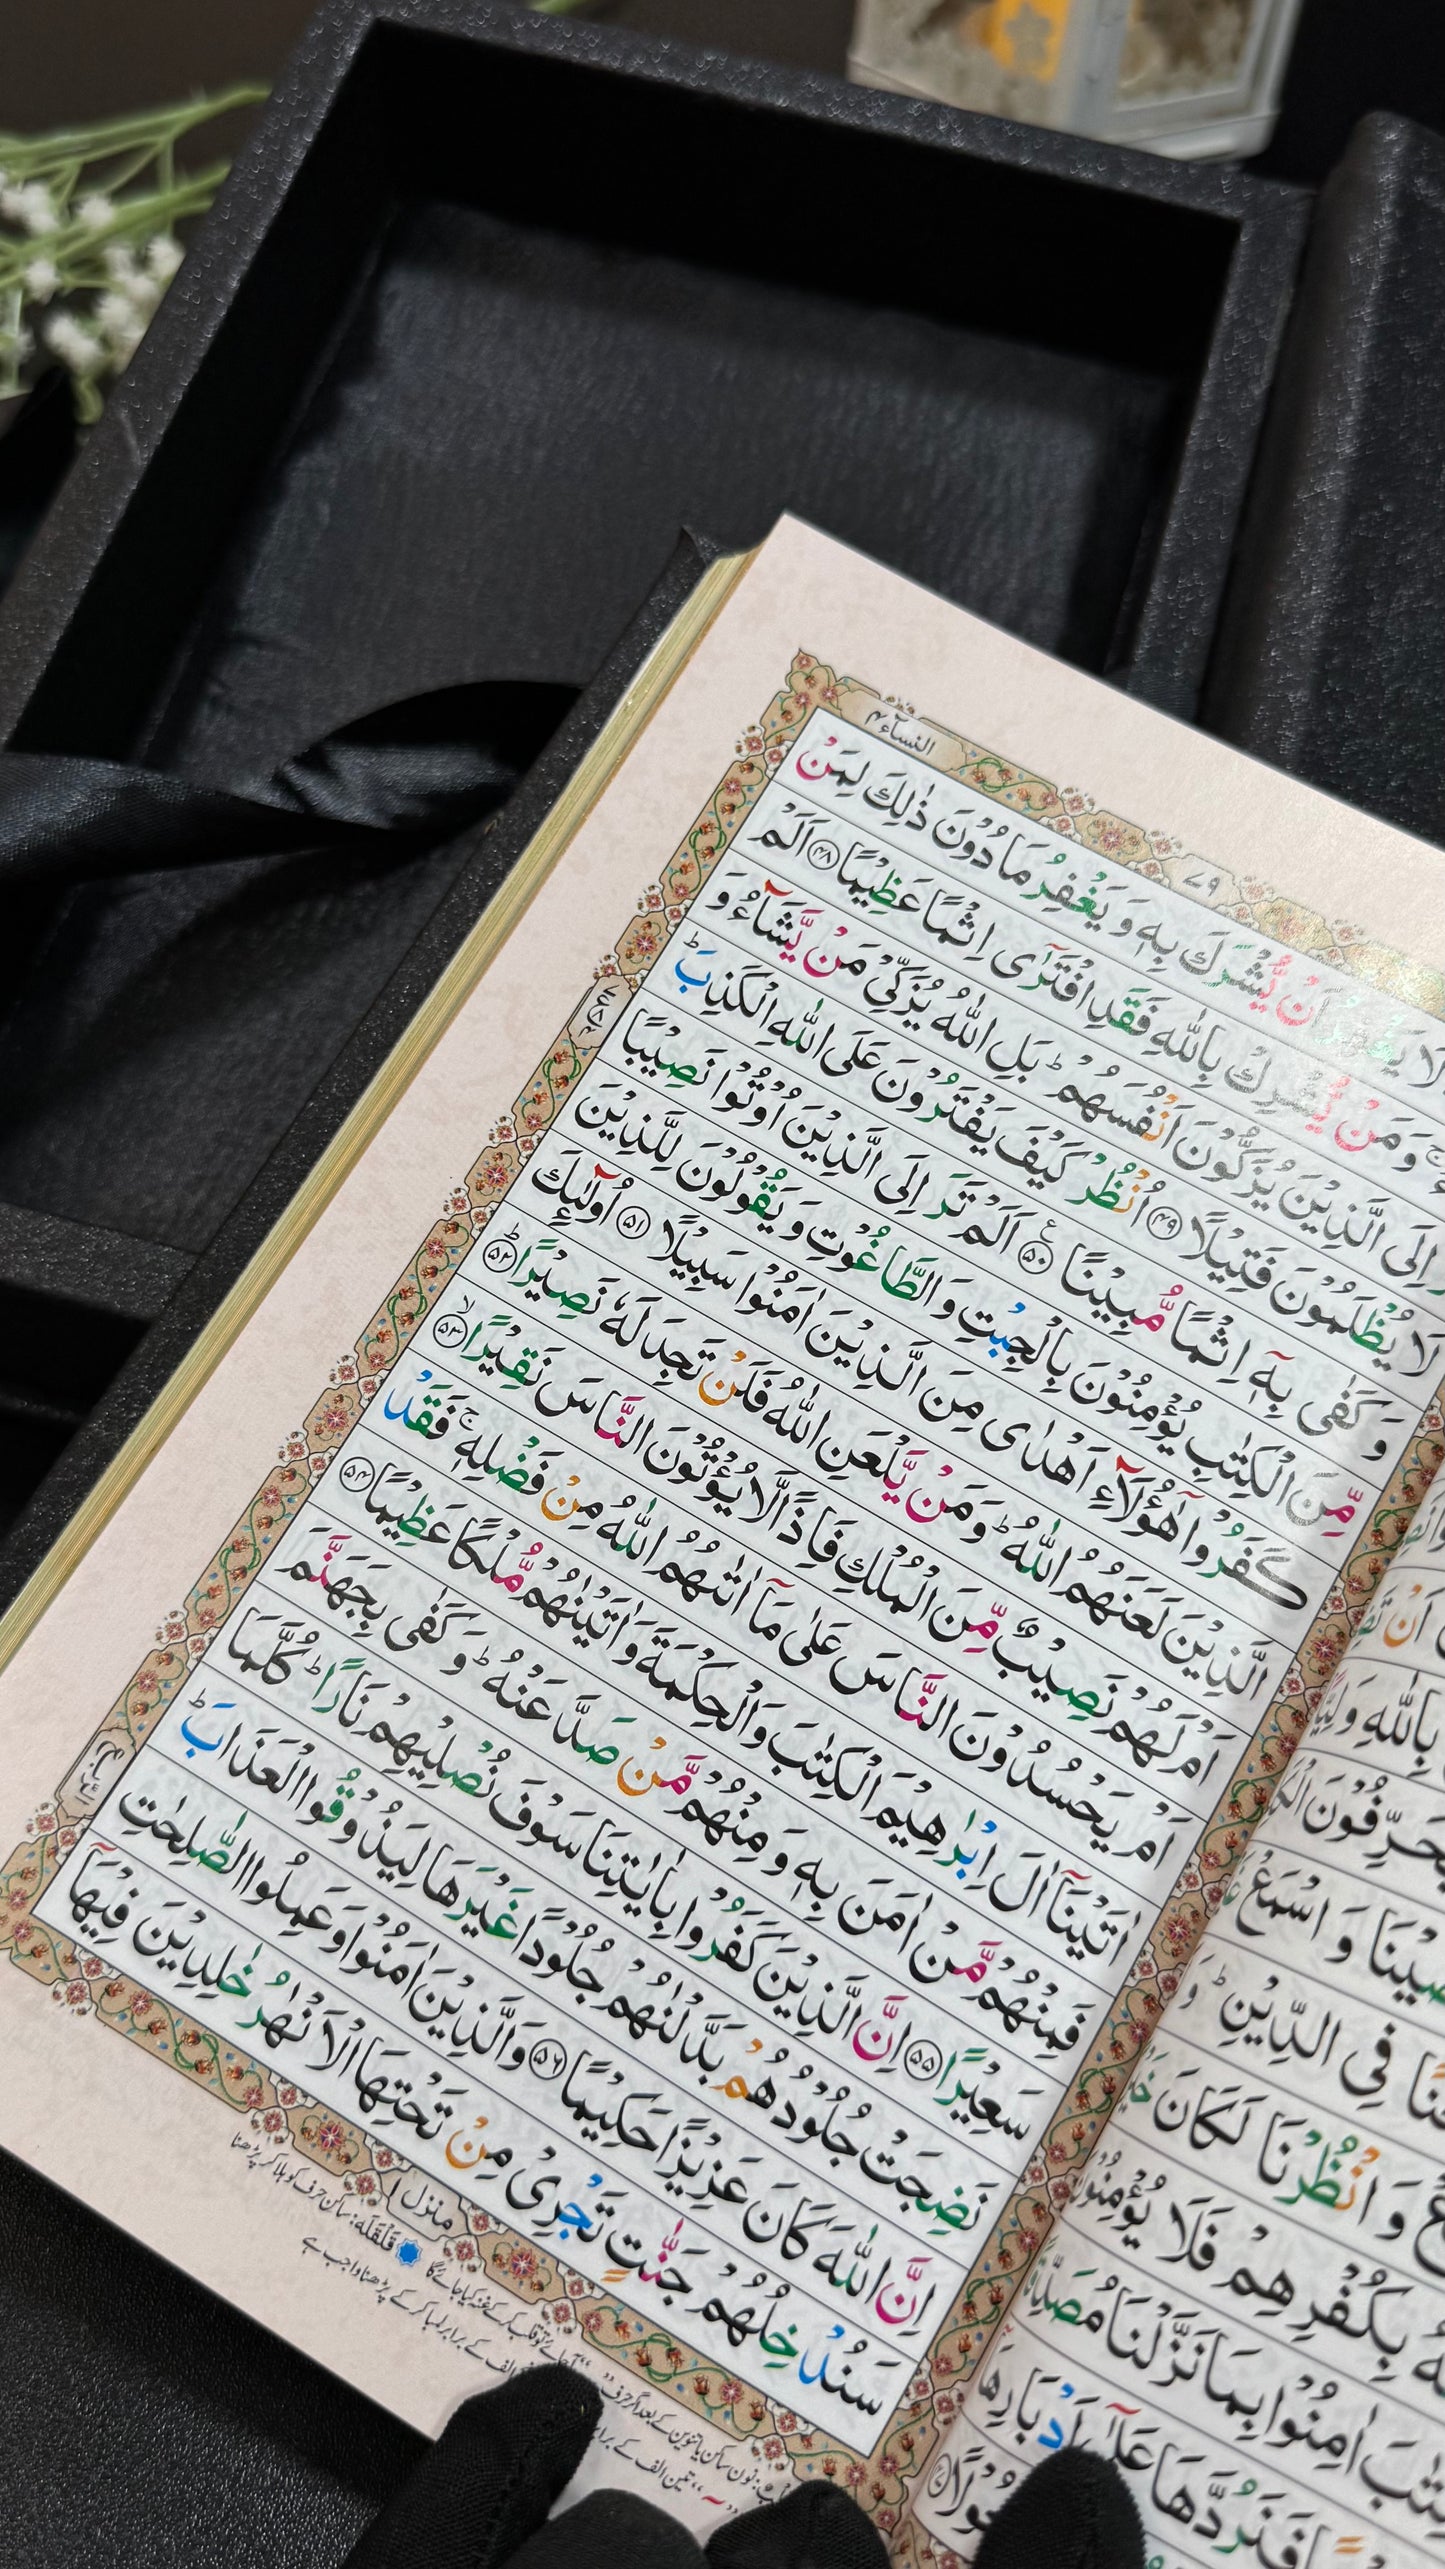 النسآء ۴
۷۹
لَا يَغْفِرُ اَنْ يُّشْرَكَ بِهٖ وَ يَغْفِرُ مَا دُوْنَ ذٰلِكَ لِمَنْ
وَ مَنْ يُّشْرِكْ بِاللّٰهِ فَقَدِ افْتَرٰٓى اِثْمًا عَظِيْمًا ﴿۴۸﴾ اَلَمْ
اِلَى الَّذِيْنَ يُزَكُّوْنَ اَنْفُسَهُمْ ؕ بَلِ اللّٰهُ يُزَكِّىْ مَنْ يَّشَآءُ وَ
لَا يُظْلَمُوْنَ فَتِيْلًا ﴿۴۹﴾ اُنْظُرْ كَيْفَ يَفْتَرُوْنَ عَلَى اللّٰهِ الْكَذِبَ ؕ
وَ كَفٰى بِهٖٓ اِثْمًا مُّبِيْنًا ﴿۵۰﴾ ع اَلَمْ تَرَ اِلَى الَّذِيْنَ اُوْتُوْا نَصِيْبًا
مِّنَ الْكِتٰبِ يُؤْمِنُوْنَ بِالْجِبْتِ وَ الطَّاغُوْتِ وَ يَقُوْلُوْنَ لِلَّذِيْنَ
كَفَرُوْا هٰٓؤُلَآءِ اَهْدٰى مِنَ الَّذِيْنَ اٰمَنُوْا سَبِيْلًا ﴿۵۱﴾ اُولٰٓئِكَ
الَّذِيْنَ لَعَنَهُمُ اللّٰهُ ؕ وَ مَنْ يَّلْعَنِ اللّٰهُ فَلَنْ تَجِدَ لَهٗ نَصِيْرًا ؕ ﴿۵۲﴾
اَمْ لَهُمْ نَصِيْبٌ مِّنَ الْمُلْكِ فَاِذًا لَّا يُؤْتُوْنَ النَّاسَ نَقِيْرًا ۙ ﴿۵۳﴾
اَمْ يَحْسُدُوْنَ النَّاسَ عَلٰى مَآ اٰتٰىهُمُ اللّٰهُ مِنْ فَضْلِهٖ ۚ فَقَدْ
اٰتَيْنَآ اٰلَ اِبْرٰهِيْمَ الْكِتٰبَ وَ الْحِكْمَةَ وَ اٰتَيْنٰهُمْ مُّلْكًا عَظِيْمًا ﴿۵۴﴾
فَمِنْهُمْ مَّنْ اٰمَنَ بِهٖ وَ مِنْهُمْ مَّنْ صَدَّ عَنْهُ ؕ وَ كَفٰى بِجَهَنَّمَ
سَعِيْرًا ﴿۵۵﴾ اِنَّ الَّذِيْنَ كَفَرُوْا بِاٰيٰتِنَا سَوْفَ نُصْلِيْهِمْ نَارًا ؕ كُلَّمَا
نَضِجَتْ جُلُوْدُهُمْ بَدَّلْنٰهُمْ جُلُوْدًا غَيْرَهَا لِيَذُوْقُوا الْعَذَابَ ؕ
اِنَّ اللّٰهَ كَانَ عَزِيْزًا حَكِيْمًا ﴿۵۶﴾ وَ الَّذِيْنَ اٰمَنُوْا وَ عَمِلُوا الصّٰلِحٰتِ
سَنُدْخِلُهُمْ جَنّٰتٍ تَجْرِىْ مِنْ تَحْتِهَا الْاَنْهٰرُ خٰلِدِيْنَ فِيْهَآ
منزل ۱
قلقلہ: ساکن حرف کو ہلا کر پڑھنا
نون ساکن یا تنوین کے بعد اگر حرف
الف کے برابر لمبا کر کے پڑھنا واجب ہے
بِاللّٰهِ
فِى الدِّيْنِ ؕ
وَ انْظُرْنَا لَكَانَ
بِكُفْرِهِمْ فَلَا يُؤْمِنُوْنَ
اٰمِنُوْا بِمَا نَزَّلْنَا مُصَدِّقًا
فَنَرُدَّهَا عَلٰٓى اَدْبَارِهَا